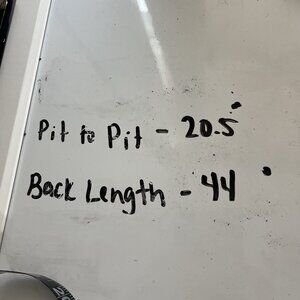 Pit to Pit - 20.5"
Back Length - 44